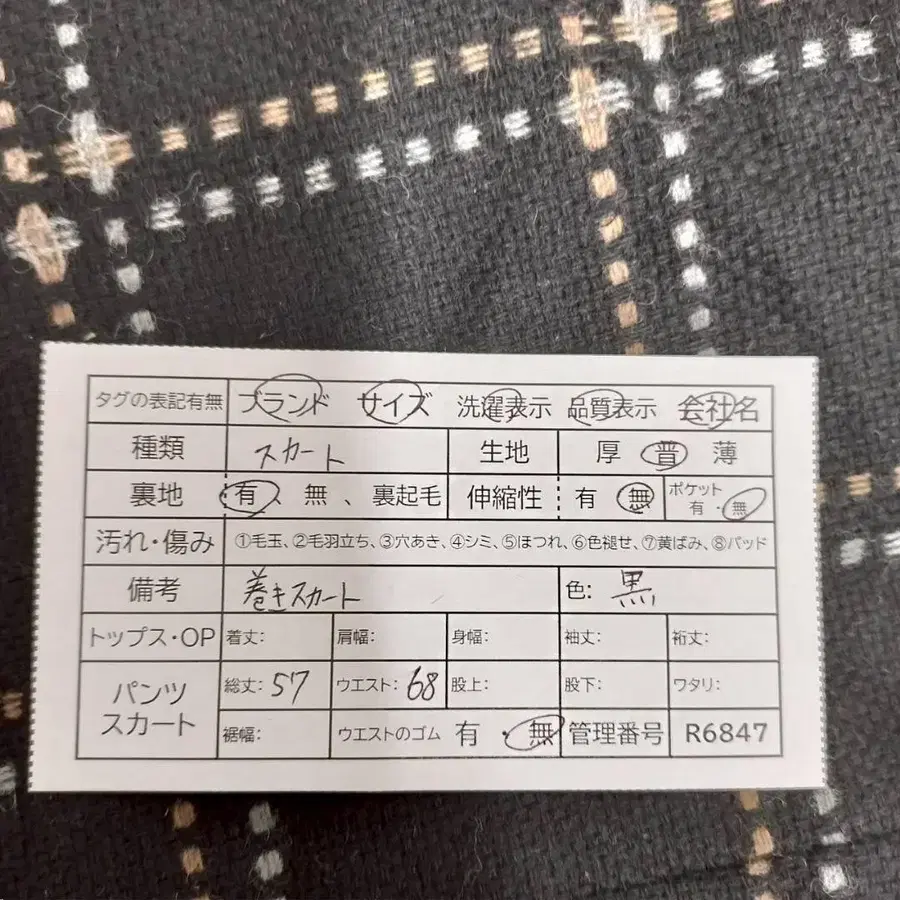 タグの表記有無 ブランド サイズ 洗濯表示 品質表示 会社名
種類 スカート 生地 厚 普 薄
裏地 有、無、裏起毛 伸縮性 有 無 ポケット 有・無
汚れ・傷み ①毛玉、②毛羽立ち、③穴あき、④シミ、⑤ほつれ、⑥色褪せ、⑦黄ばみ、⑧パッド
備考 巻きスカート 色: 黒
トップス・OP 着丈: 肩幅: 身幅: 袖丈: 裄丈:
パンツ スカート 総丈: 57 ウエスト: 68 股上: 股下: ワタリ:
裾幅: ウエストのゴム 有・無 管理番号 R6847